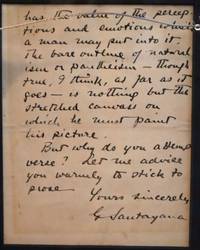 has the value of the percep-
tions and emotions which
a man may put into it,
The bare outline of natural
ism or pantheism – though
true, I think, as far as it
goes – is nothing but the
stretched canvass on
which he must paint
his picture.
But why do you attempt
verse? Let me advise
you warmly to stick to
prose
Yours sincerely
G Santayana